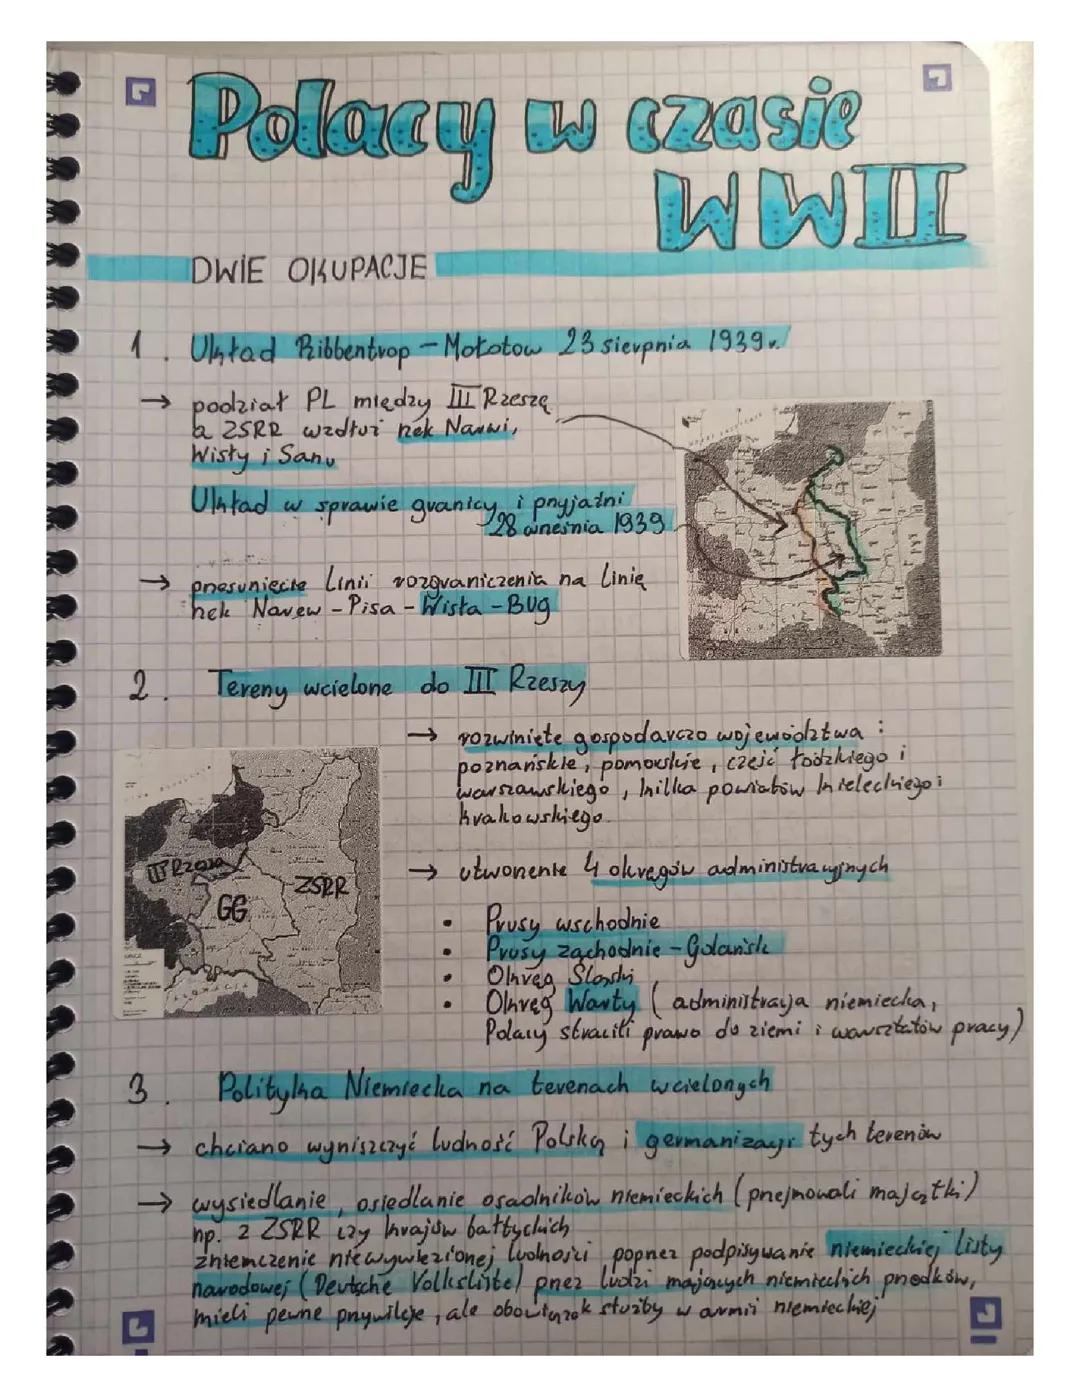 Polacy w czasie
WWII
DWIE OKUPACJE
1. Układ Ribbentrop - Mołotow 23 sierpnia 1939r.
→ podział PL między III Rzeszą
a ZSRR wzdłuż rzek Narwi,
Wisły i Sanu
Układ w sprawie granicy i przyjaźni
28 września 1939
→ przesunięcie Linii rozgraniczenia na linię
rzek Narew - Pisa - Wisła - Bug
2. Tereny wcielone do III Rzeszy
→ rozwinięte gospodarczo województwa :
poznańskie, pomorskie, część łódzkiego i
warszawskiego, kilka powiatów kieleckiego i
krakowskiego.
III Rzesza
ZSRR
GG
→ utworzenie 4 okręgów administracyjnych
• Prusy wschodnie
• Prusy zachodnie - Gdańsk
• Okręg Śląski
• Okręg Warty ( administracja niemiecka,
Polacy stracili prawo do ziemi i warsztatów pracy)
3. Polityka Niemiecka na terenach wcielonych
→ chciano wyniszczyć ludność Polską i germanizacji tych terenów
→ wysiedlanie, osiedlanie osadników niemieckich (przejmowali majątki)
np. z ZSRR czy krajów bałtyckich
zniemczenie niewywiezionej ludności poprzez podpisywanie niemieckiej listy
narodowej (Deutsche Volksliste) przez ludzi mających niemieckich przodków,
mieli pewne przywileje, ale obowiązek służby w armii niemieckiej